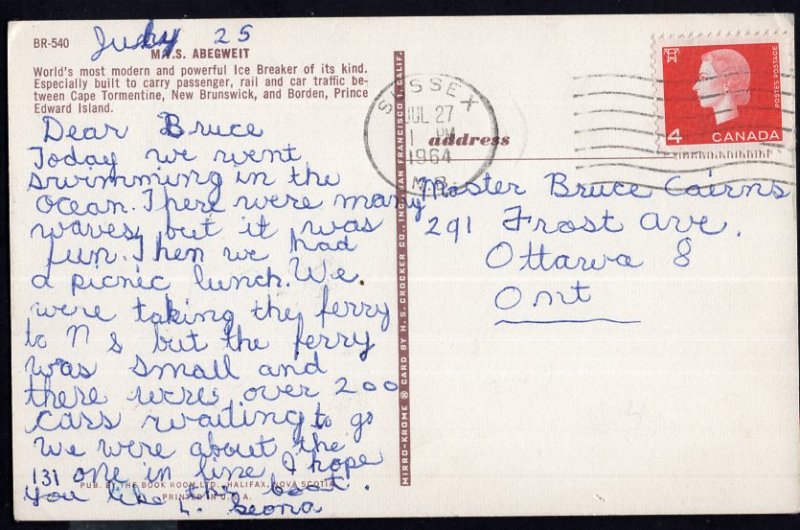 BR-540
July 25
M.V.S. ABEGWEIT
World's most modern and powerful Ice Breaker of its kind.
Especially built to carry passenger, rail and car traffic be-
tween Cape Tormentine, New Brunswick, and Borden, Prince
Edward Island.
Dear Bruce
Today we went
swimming in the
ocean. There were many
waves, but it was
fun. Then we had
a picnic lunch. We
were taking the ferry
to N S but the ferry
was small and
there were over 200
cars waiting to go
We were about the
131 one in line. I hope
you like this boat.
L. Seona
PUB. BY THE BOOK ROOM LTD., HALIFAX, NOVA SCOTIA
PRINTED IN U.S.A.
MIRRO-KROME ® CARD BY H. S. CROCKER CO., INC., SAN FRANCISCO 1, CALIF.
SUSSEX
JUL 27
1 PM
1964
N.B.
address
POSTES POSTAGE
4
CANADA
Master Bruce Cairns
291 Frost Ave.
Ottawa 8
Ont